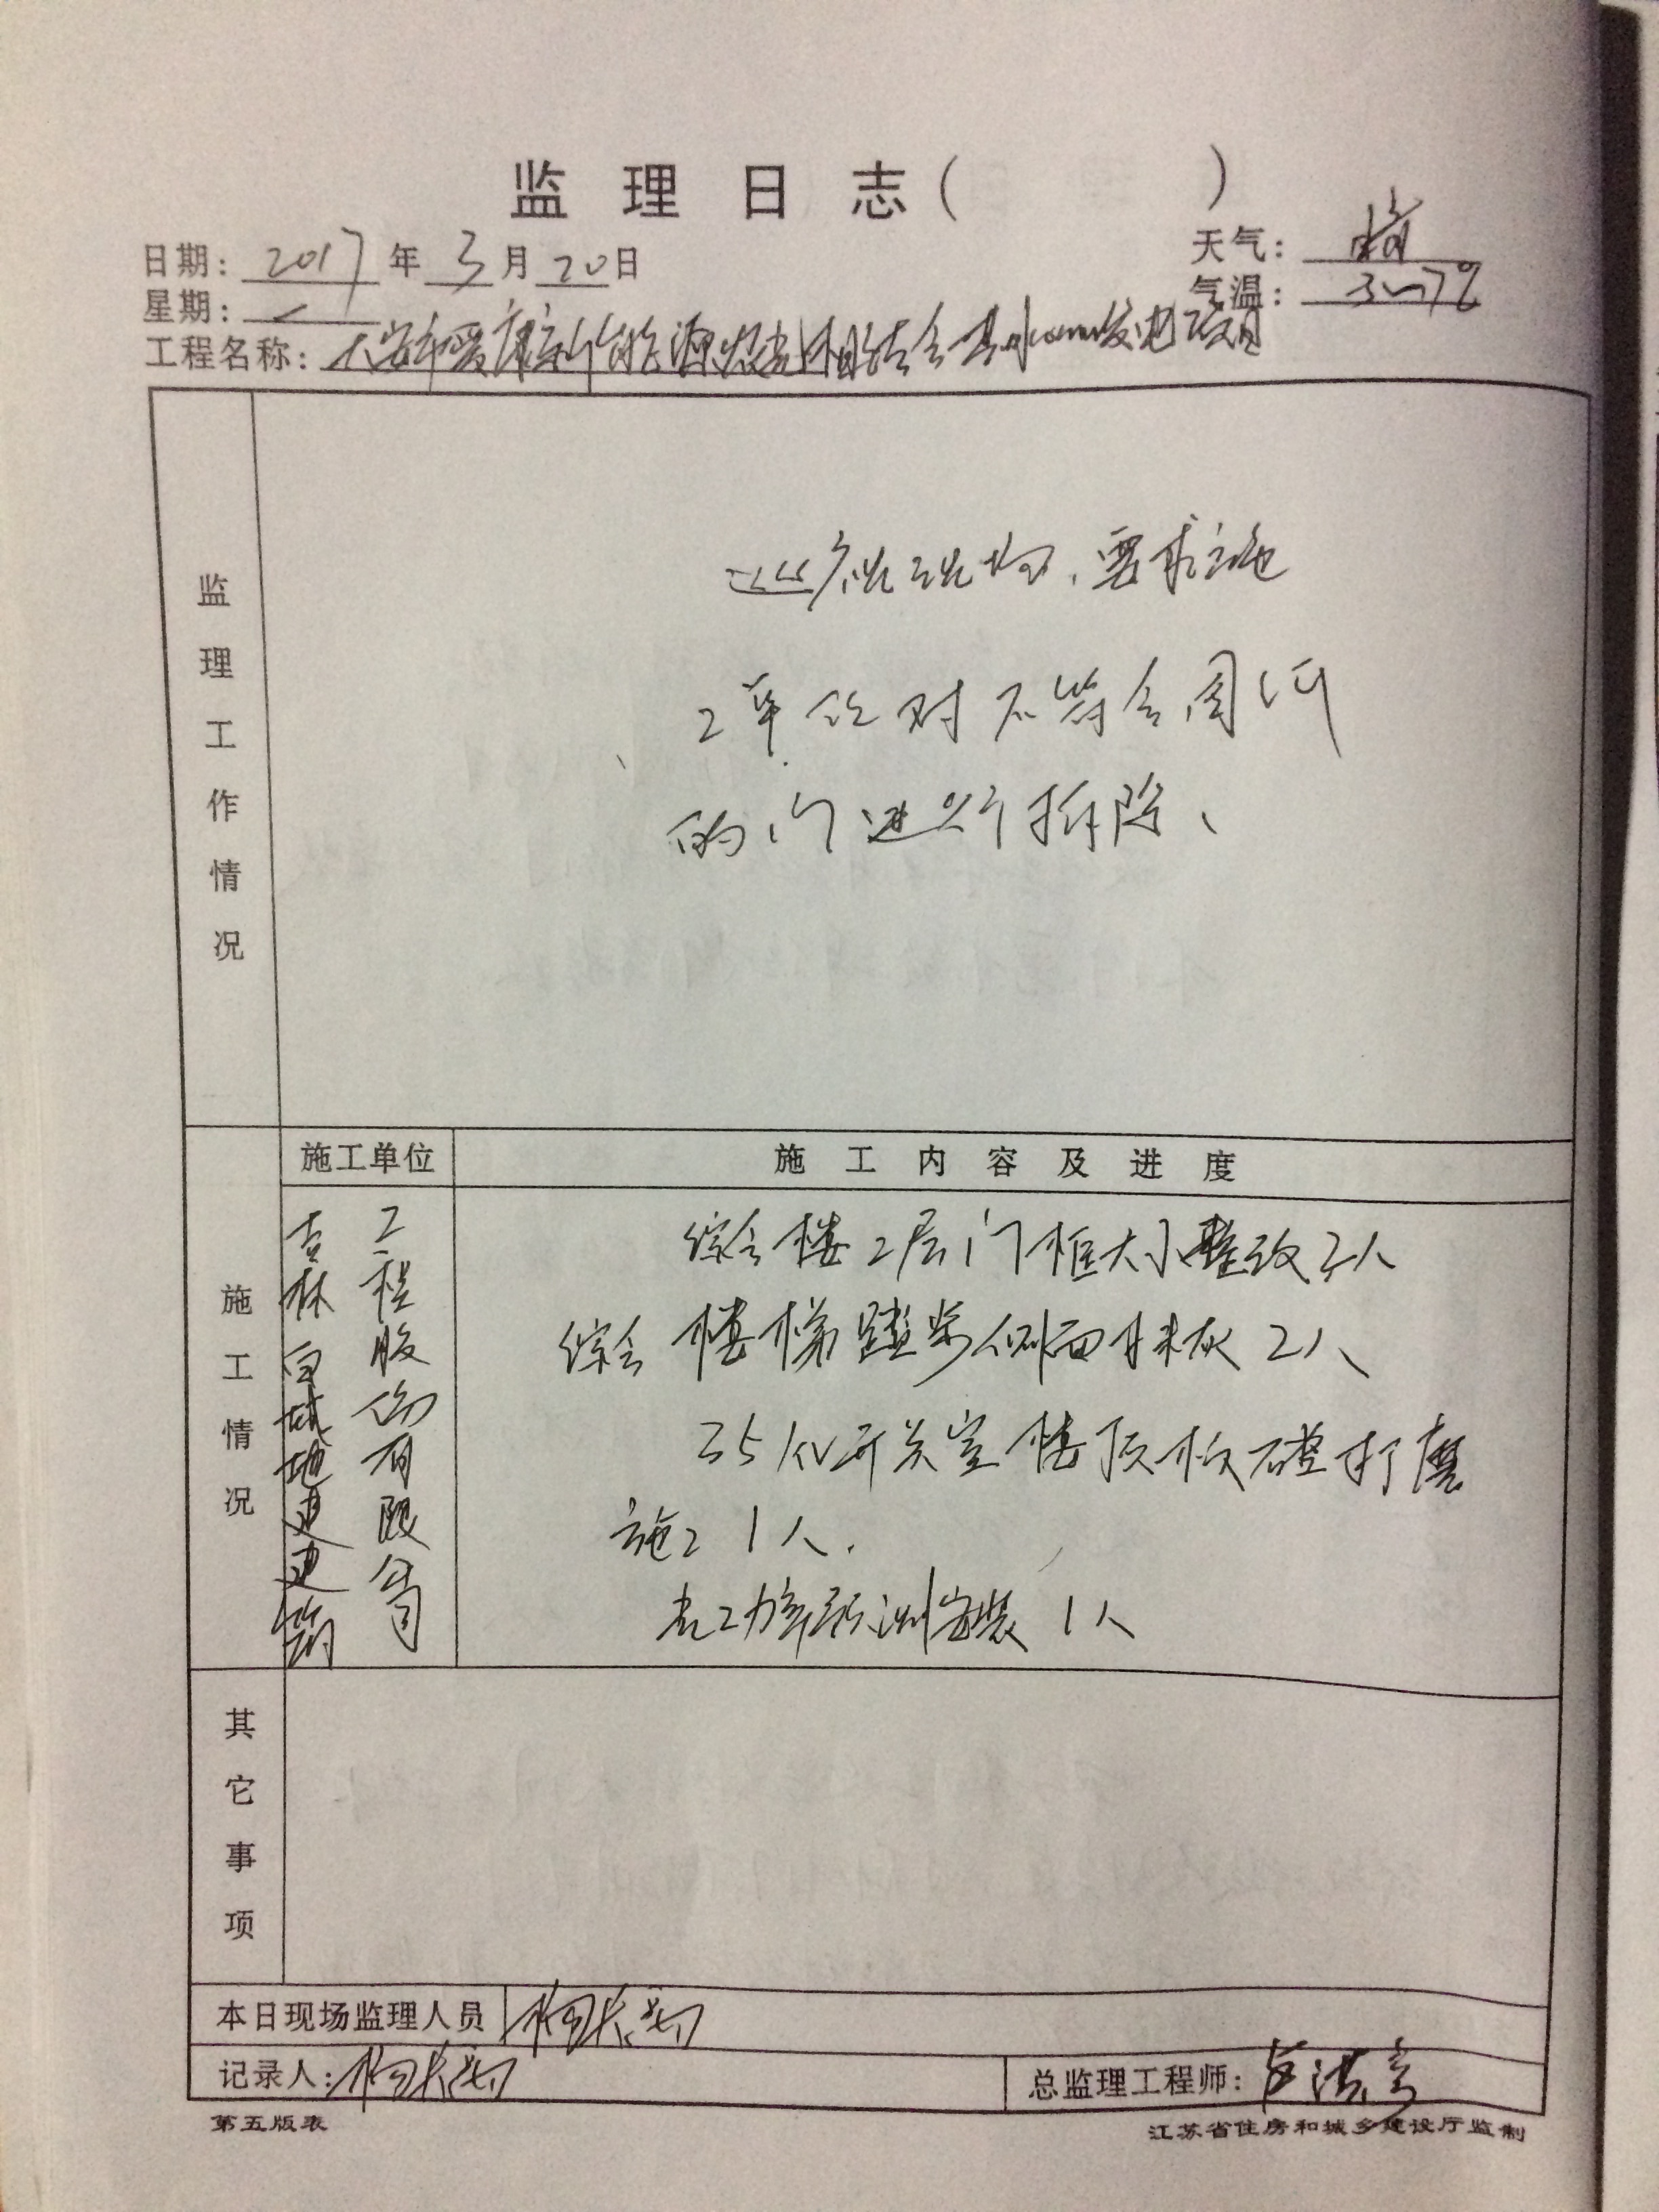 监理日志( )
日期: 2017 年 3 月 20 日
天气: 晴
星期: 一
气温: 3~7℃
工程名称: 大安市爱康新能源农光相结合 发电项目
监理工作情况
巡视现场,要求施
工单位对不符合图纸
的门进行拆除、
施工情况
施工单位
施工内容及进度
吉林白城地建建筑
工程股份有限公司
综合楼2层门框大小整改2人
综合楼梯踏步侧面抹灰2人
35KV开关室楼顶板砼打磨
施工1人.
光功率预测安装1人
其它事项
本日现场监理人员
记录人:
总监理工程师:
第五版表
江苏省住房和城乡建设厅监制